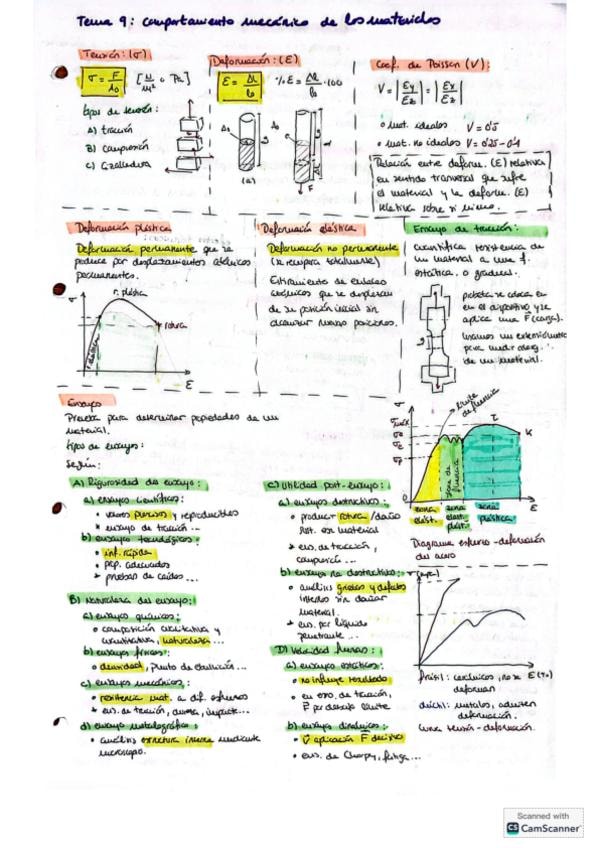 Tema 9: comportamiento mecánico de los materiales
Tensión: (σ)
σ = F / A₀ [N/m² o Pa]
tipos de tensión:
A) tracción
B) compresión
C) Cizalladura
Deformación: (ε)
ε = Δl / l₀ %ε = Δl / l₀ · 100
A₀
(a)
F
Coef. de Poisson (V):
V = |εy / εz| = |εx / εz|
mat. ideales V = 0'5
mat. no ideales V = 0'25 - 0'4
Relación entre deform. (ε) relativa
en sentido tranversal que sufre
el material y la deform. (ε)
relativa sobre sí mismo.
Deformación plástica
Deformación permanente que se
produce por desplazamientos atómicos
permanentes.
σ
r. plástica
rotura
ε
Deformación elástica
Deformación no permanente
(se recupera totalmente)
Estiramiento de enlaces
atómicos que se desplazan
de su posición inicial sin
alcanzar nuevas posiciones.
Ensayo de tracción:
cuantifica resistencia de
un material a una f.
estática o gradual.
probeta se coloca en
en el dispositivo y se
aplica una F (carga).
usamos un extensómetro
para medir alarg.
de un material.
Ensayo
Prueba para determinar propiedades de un
material.
tipos de ensayos:
Según:
A) Rigurosidad del ensayo:
a) ensayos científicos:
valores precisos y reproducibles
ensayo de tracción...
b) ensayos tecnológicos:
inf. rápida
pruebas de caídos...
B) Naturaleza del ensayo:
a) ensayos químicos:
composición cualitativa y
cuantitativa, naturaleza...
b) ensayos físicos:
densidad, punto de ebullición...
c) ensayos mecánicos:
resistencia mat. a dif. esfuerzos
ens. de tracción, dureza, impacto...
d) ensayos metalográfico:
análisis estructura interna mediante
microscopio.
C) Utilidad post-ensayo:
a) ensayos destructivos:
producen rotura/daño
ens. de tracción,
compresión...
b) ensayos no destructivos:
análisis grietas y defectos
internos sin dañar
material.
ens. por líquido
penetrante...
D) Velocidad fuerzas:
a) ensayos estáticos:
no influye resultado
b) ensayos dinámicos:
v aplicación F decisiva
ens. de Charpy, fatiga...
límite de
fluencia
σ
σmáx
zona de
fluencia
zona
elást.
zona
elast-
plást.
zona
plástica
ε
Diagrama esfuerzo-deformación
del acero
frágil: cerámicos, no se
deforman
dúctil: metales, admiten
deformación.
Curva tensión-deformación.
Scanned with
CS CamScanner